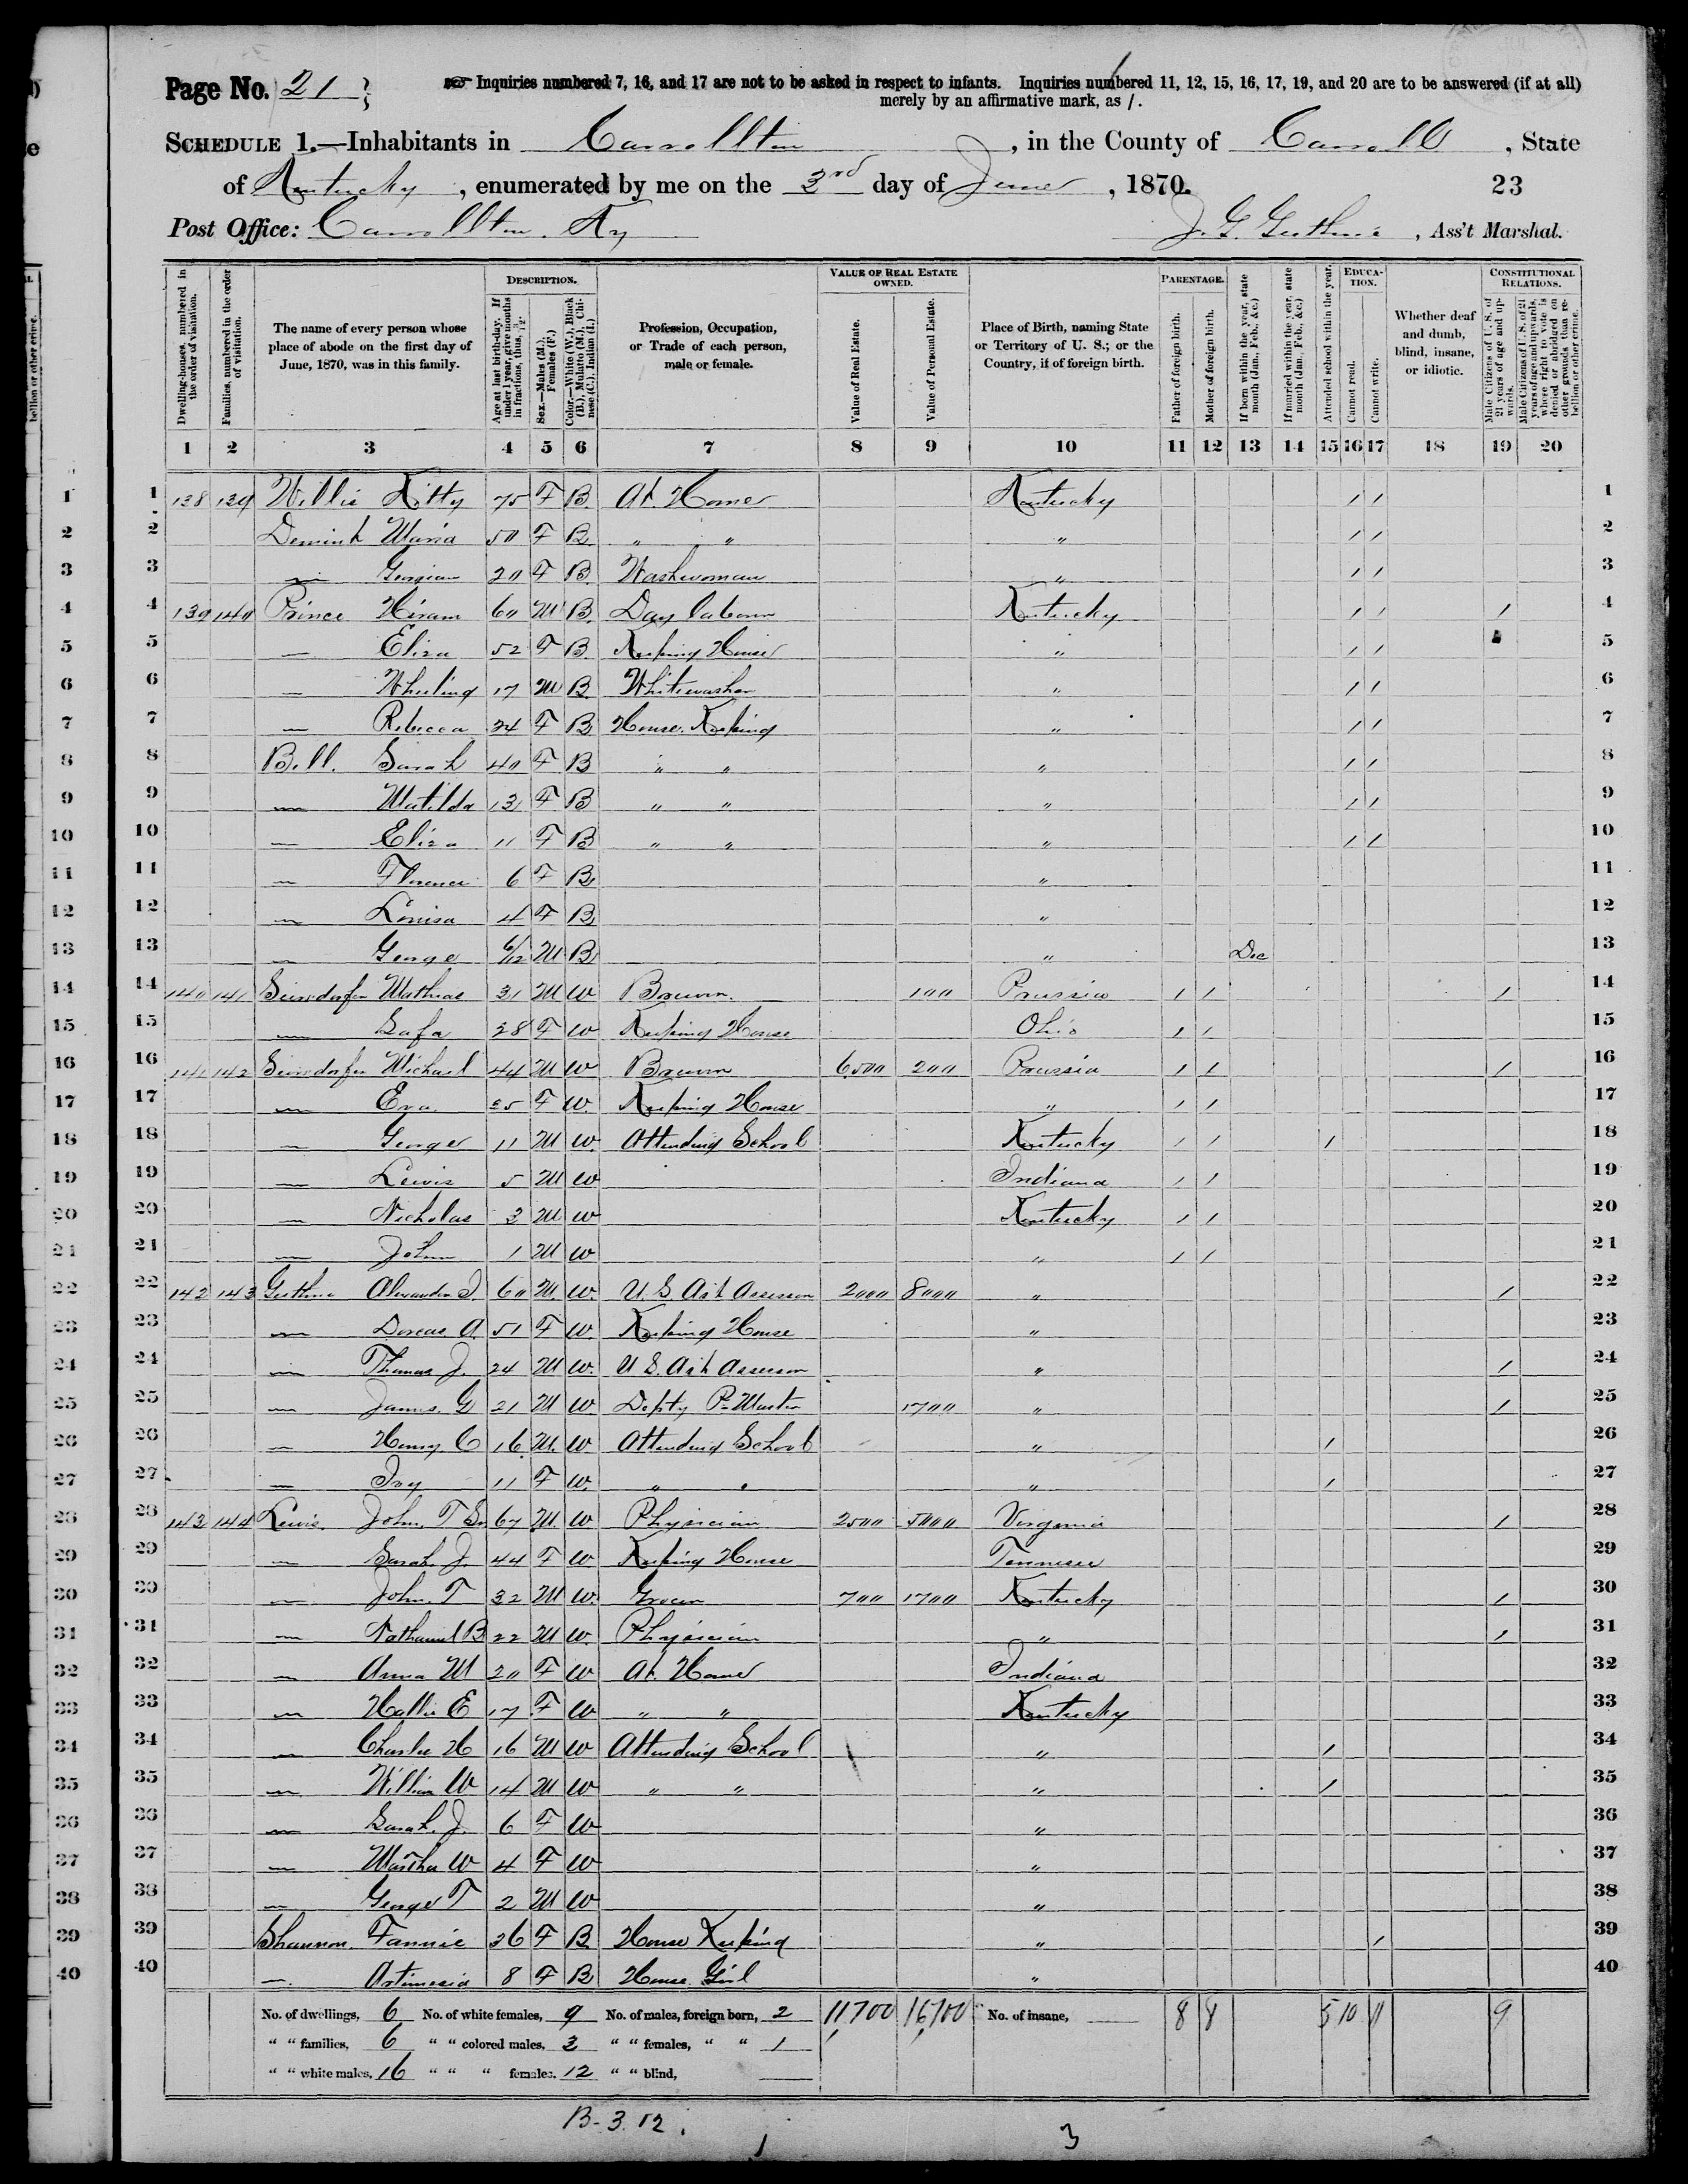 Page No. 21
Inquiries numbered 7, 16, and 17 are not to be asked in respect to infants. Inquiries numbered 11, 12, 15, 16, 17, 19, and 20 are to be answered (if at all)
merely by an affirmative mark, as /.
SCHEDULE 1.—Inhabitants in Carrollton, in the County of Carroll, State
of Kentucky, enumerated by me on the 3rd day of June, 1870. 23
Post Office: Carrollton Ky J. G. Guthrie, Ass't Marshal.
DESCRIPTION. VALUE OF REAL ESTATE OWNED. PARENTAGE. EDUCATION. CONSTITUTIONAL RELATIONS.
Dwelling-houses, numbered in the order of visitation.
Families, numbered in the order of visitation.
The name of every person whose place of abode on the first day of June, 1870, was in this family.
Age at last birth-day. If under 1 year, give months in fractions, thus, 3/12.
Sex.—Males (M.), Females (F.)
Color.—White (W.), Black (B.), Mulatto (M.), Chinese (C.), Indian (I.)
Profession, Occupation, or Trade of each person, male or female.
Value of Real Estate.
Value of Personal Estate.
Place of Birth, naming State or Territory of U. S.; or the Country, if of foreign birth.
Father of foreign birth.
Mother of foreign birth.
If born within the year, state month (Jan., Feb., &c.)
If married within the year, state month (Jan., Feb., &c.)
Attended school within the year.
Cannot read.
Cannot write.
Whether deaf and dumb, blind, insane, or idiotic.
Male Citizens of U. S. of 21 years of age and upwards.
Male Citizens of U. S. of 21 years of age and upwards, where right to vote is denied or abridged on other grounds than rebellion or other crime.
1 2 3 4 5 6 7 8 9 10 11 12 13 14 15 16 17 18 19 20
1 138 139 Willis Kitty 75 F B At Home Kentucky / / 1
2 Maria 50 F B " " " / / 2
3 — 20 F B Washwoman " / / 3
4 139 140 Prince Hiram 60 M B Day labour Kentucky / / / 4
5 — Eliza 52 F B Keeping House " / / 5
6 — Wheeling 17 M B Whitewasher " / / 6
7 — Rebecca 24 F B House Keeping " / / 7
8 Bell Sarah 40 F B " " " / / 8
9 — Matilda 13 F B " " " / / 9
10 — Eliza 11 F B " " " / / 10
11 — Florence 6 F B " 11
12 — Louisa 4 F B " 12
13 — George 6/12 M B " Dec 13
14 140 141 Mathias 31 M W Brewer 100 Prussia / / / 14
15 — 28 F W Keeping House Ohio / / 15
16 141 142 Michael 44 M W Brewer 6500 200 Prussia / / / 16
17 — Eva 35 F W Keeping House " / / 17
18 — George 11 M W Attending School Kentucky / / / 18
19 — Lewis 5 M W Indiana / / 19
20 — Nicholas 3 M W Kentucky / / 20
21 — John 1 M W " / / 21
22 142 143 Guthrie Alexander 60 M W U. S. Ast Assessor 2000 8000 " / 22
23 — Dorcas A. 51 F W Keeping House " 23
24 — Thomas J. 24 M W U S. Ast Assessor " / 24
25 — James. G 21 M W Depty P-Master 1700 " / 25
26 — Henry C 16 M W Attending School " / 26
27 — Ivy 11 F W " " " / 27
28 143 144 Lewis John. T Sr 67 M W Physician 2500 5000 Virginia / 28
29 — Sarah. J. 44 F W Keeping House Tennessee 29
30 — John. T 32 M W Grocer 700 1700 Kentucky / 30
31 — Nathaniel B 22 M W Physician " / 31
32 — Anna M 20 F W At Home Indiana 32
33 — Hallie E 17 F W " " Kentucky 33
34 — Charles H 16 M W Attending School " / 34
35 — William W 14 M W " " " / 35
36 — Sarah. J. 6 F W " 36
37 — Martha W 4 F W " 37
38 — George T 2 M W " 38
39 Shannon Fannie 36 F B House Keeping " / 39
40 — Artimesia 8 F B House Girl " 40
No. of dwellings, 6 No. of white females, 9 No. of males, foreign born, 2 11,700 16,700 No. of insane, 8 8 5 10 11 9
" " families, 6 " " colored males, 3 " " females, " " 1
" " white males, 16 " " " females, 12 " " blind,
B-3.12.
3